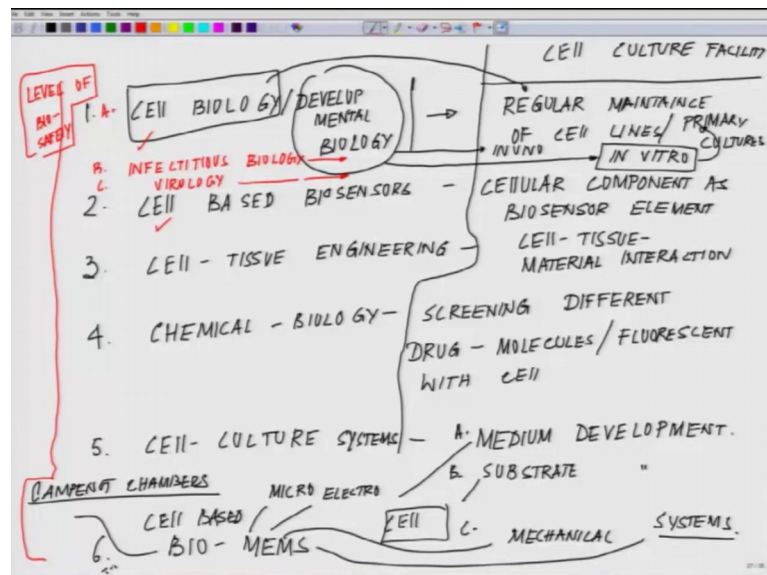 File Edit View Insert Actions Tools Help
CELL CULTURE FACILITY
LEVEL OF
BIO-
SAFETY
1. A. CELL BIOLOGY / DEVELOP
MENTAL
BIOLOGY
REGULAR MAINTAINCE
OF CELL LINES / PRIMARY
CULTURES
IN VIVO
IN VITRO
B. INFECTITIOUS BIOLOGY
C. VIROLOGY
2. CELL BASED BIOSENSORS - CELLULAR COMPONENT AS
BIOSENSOR ELEMENT
3. CELL - TISSUE ENGINEERING - CELL - TISSUE -
MATERIAL INTERACTION
4. CHEMICAL - BIOLOGY - SCREENING DIFFERENT
DRUG - MOLECULES / FLUORESCENT
WITH CELL
5. CELL - CULTURE SYSTEMS - A. MEDIUM DEVELOPMENT.
B. SUBSTRATE "
CAMPENOT CHAMBERS
MICRO ELECTRO
CELL C. MECHANICAL SYSTEMS.
CELL BASED
6. BIO - MEMS